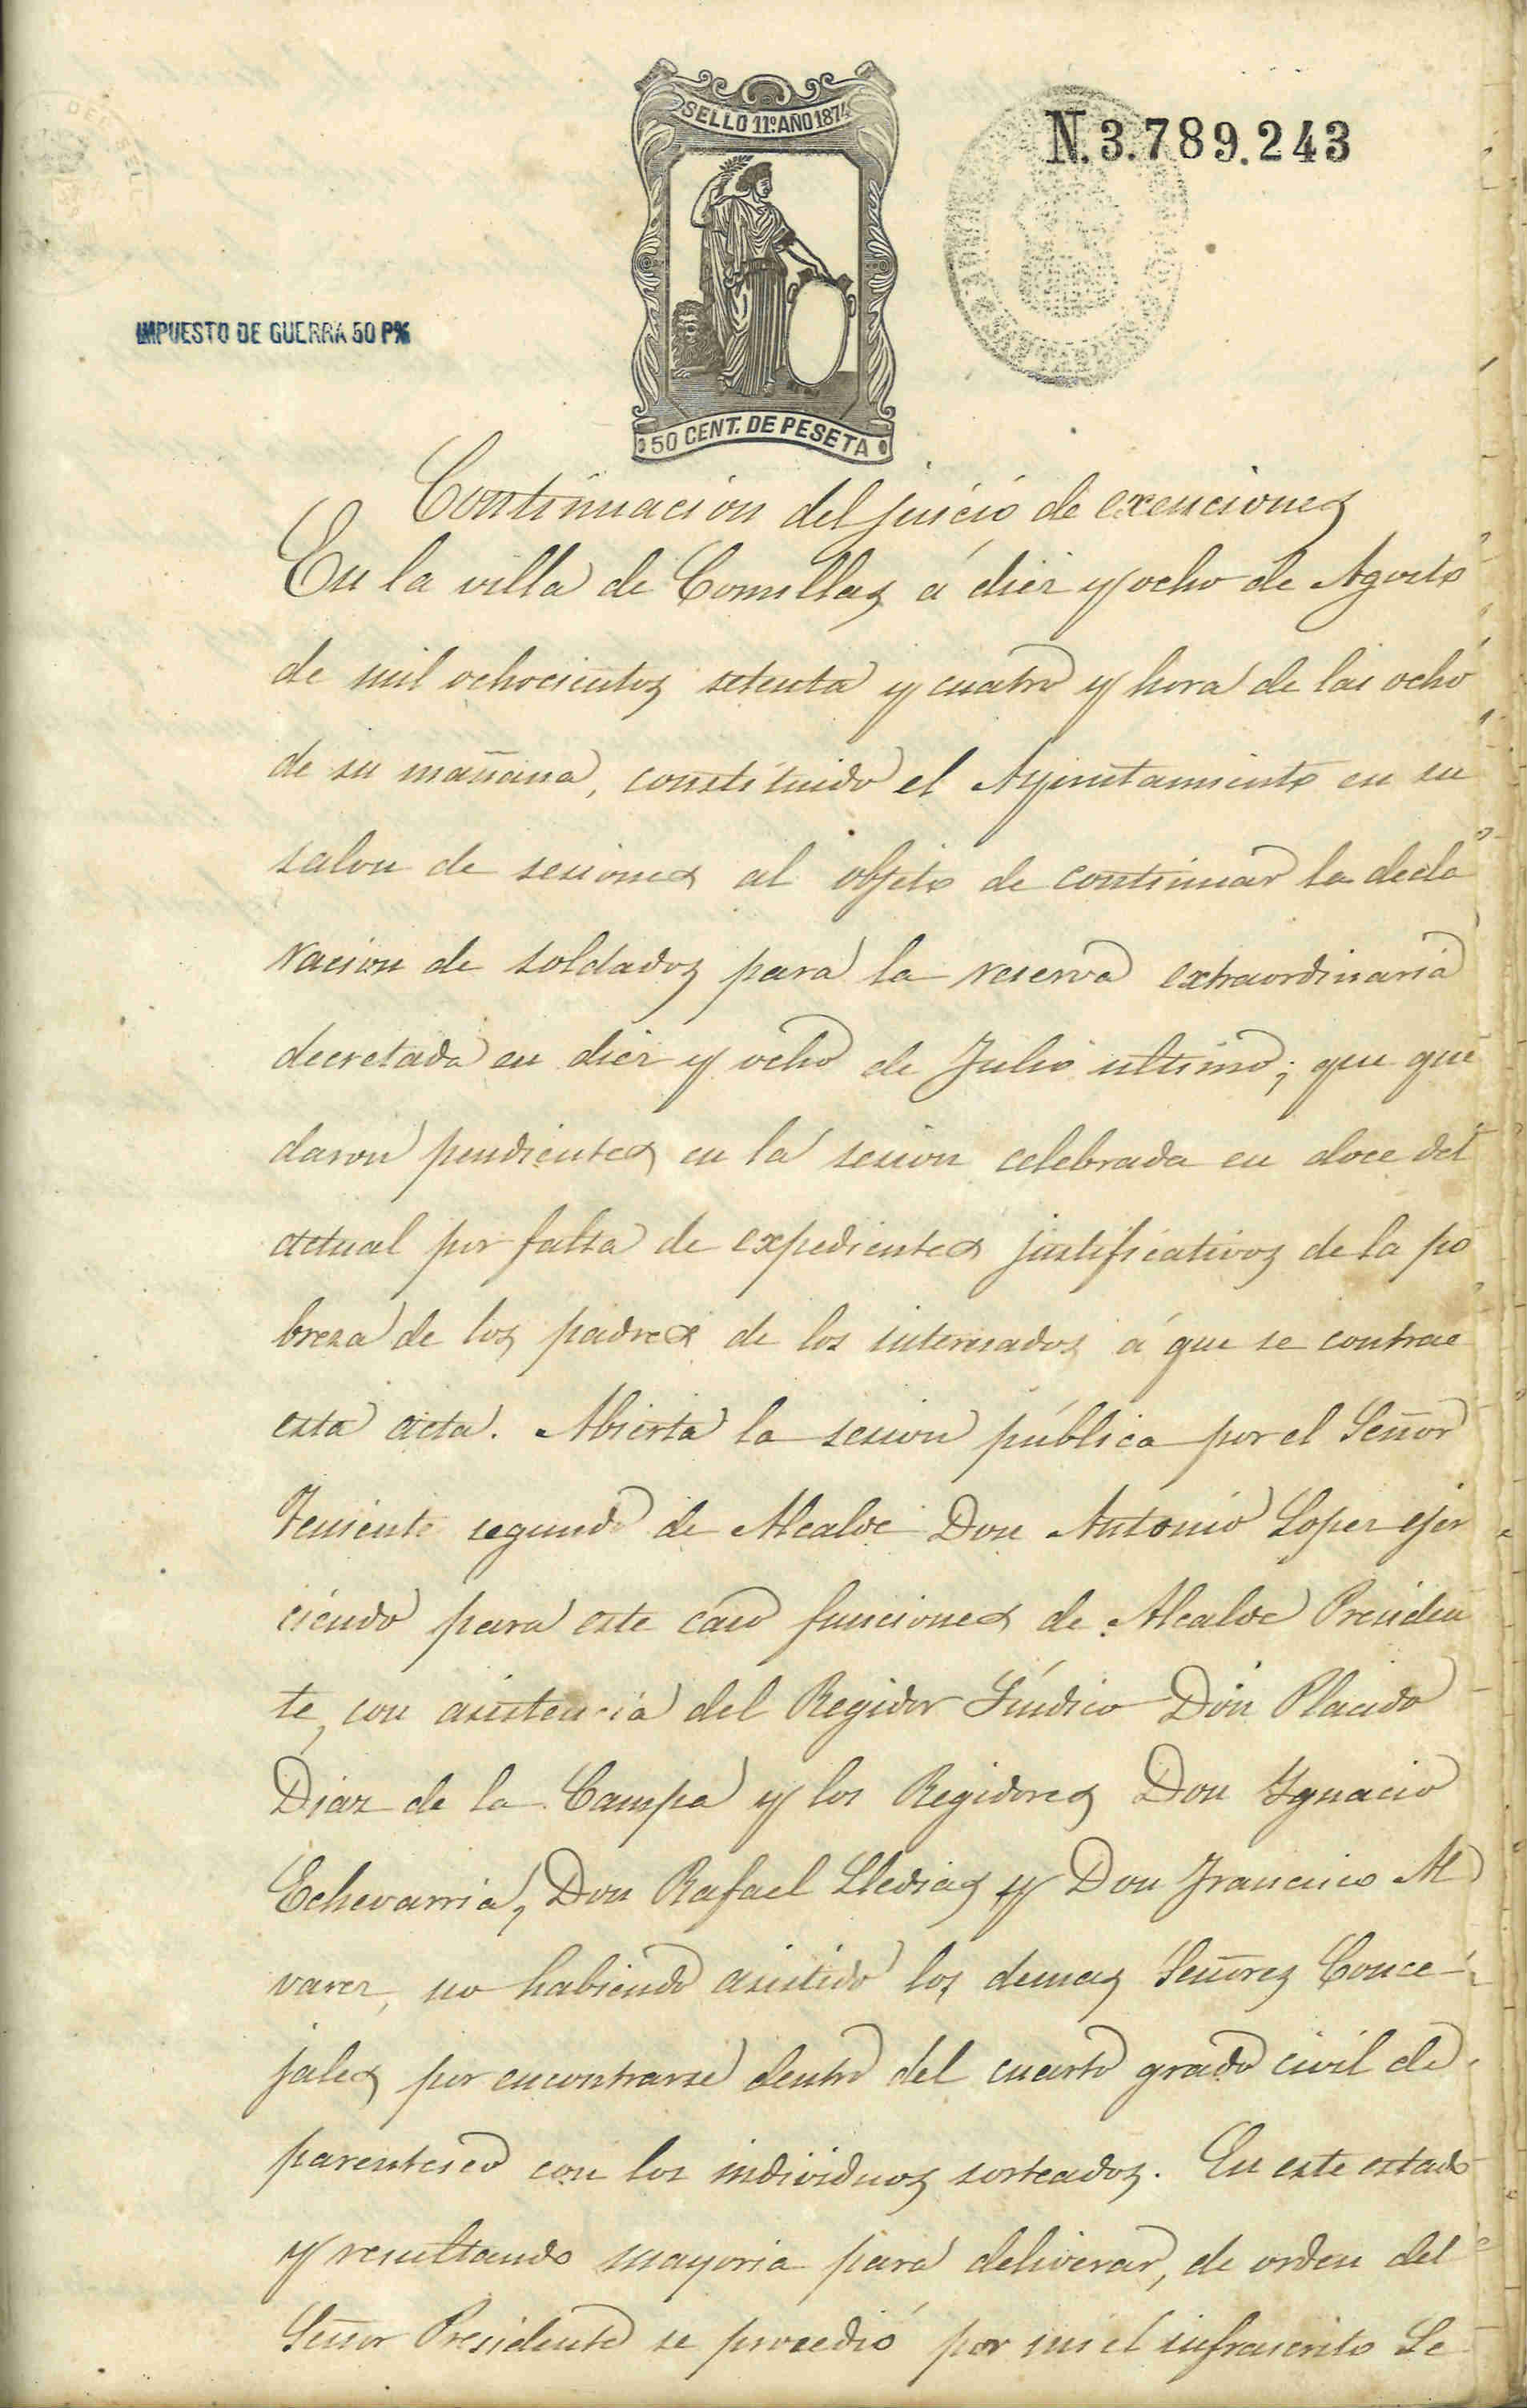 SELLO 11º AÑO 1874
N. 3.789.243
IMPUESTO DE GUERRA 50 P%
50 CENT. DE PESETA
Continuacion del juicio de exenciones
En la villa de Comillas á diez y ocho de Agosto
de mil ochocientos setenta y cuatro y hora de las ocho
de su mañana, constituido el Ayuntamiento en su
salon de sesiones al objeto de continuar la decla
racion de soldados para la reserva extraordinaria
decretada en diez y ocho de Julio ultimo; que que
daron pendientes en la sesion celebrada en doce del
actual por falta de expedientes justificativos de la po
breza de los padres de los interesados á que se contrae
esta acta. Abierta la sesion pública por el Señor
Teniente segundo de Alcalde Don Antonio Lopez ejer
ciendo para este caso funciones de Alcalde Presiden
te, con asistencia del Regidor Síndico Don Placido
Diaz de la Campa y los Regidores Don Ygnacio
Echevarria, Don Rafael Lledias y Don Francisco Al
varez, no habiendo asistido los demas Señores Conce-
jales por encontrarse dentro del cuarto grado civil de
parentesco con los individuos sorteados. En este estado
y resultando mayoria para deliverar, de orden del
Señor Presidente se procedió por mi el infrascrito Se